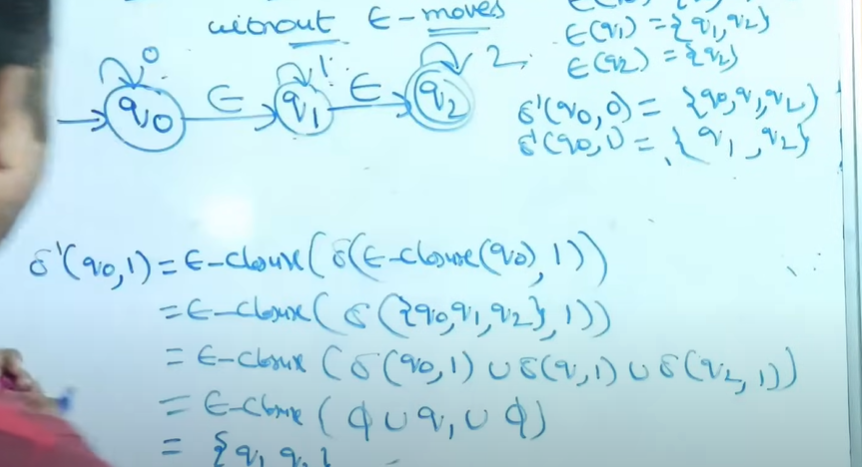 without ∈-moves
∈(q1) = {q1,q2}
∈(q2) = {q2}
0 1 2
→ q0 ∈ q1 ∈ q2
δ'(q0,0) = {q0,q1,q2}
δ'(q0,1) = {q1,q2}
δ'(q0,1) = ∈-closure(δ(∈-closure(q0),1))
= ∈-closure(δ({q0,q1,q2},1))
= ∈-closure(δ(q0,1) ∪ δ(q1,1) ∪ δ(q2,1))
= ∈-closure(ϕ ∪ q1 ∪ ϕ)
= {q1 q2}